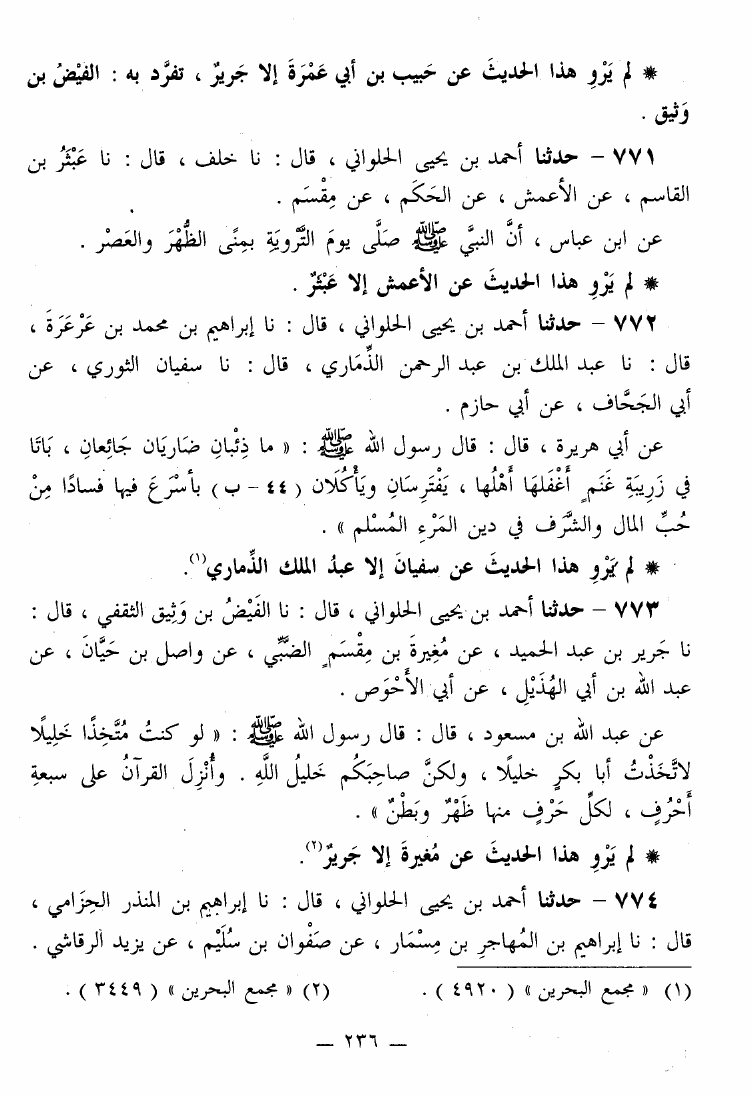 * لم يَرْوِ هذا الحديثَ عن حَبيب بن أبي عَمْرَةَ إلا جَريرٌ ، تفرَّد به : الفَيْضُ بن
وَثيق .
٧٧١ – حدثنا أحمد بن يحيى الحلواني ، قال : نا خلف ، قال : نا عَبْثَرُ بن
القاسم ، عن الأعمش ، عن الحَكَم ، عن مِقْسَم .
عن ابن عباس ، أنَّ النبيَّ ﷺ صَلَّى يومَ التَّرويَةِ بمِنًى الظُّهْرَ والعَصْرَ .
* لم يَرْوِ هذا الحديثَ عن الأعمش إلا عَبْثَرٌ .
٧٧٢ – حدثنا أحمد بن يحيى الحلواني ، قال : نا إبراهيم بن محمد بن عَرْعَرَةَ ،
قال : نا عبد الملك بن عبد الرحمن الذِّمَاري ، قال : نا سفيان الثوري ، عن
أبي الجَحَّاف ، عن أبي حازم .
عن أبي هريرة ، قال : قال رسول الله ﷺ : « ما ذِئْبانِ ضَاريَان جَائِعانِ ، بَاتَا
في زَرِيبَةِ غَنَمٍ أَغْفَلهَا أَهْلُها ، يَفْتَرِسَانِ ويَأْكُلَان ( ٤٤ – ب ) بأسْرَعَ فيها فسادًا مِنْ
حُبِّ المال والشَّرَف في دين المَرْءِ المُسْلم » .
* لم يَرْوِ هذا الحديثَ عن سفيانَ إلا عبدُ الملك الذِّماري(١).
٧٧٣ – حدثنا أحمد بن يحيى الحلواني ، قال : نا الفَيْضُ بن وَثِيق الثقفي ، قال :
نا جَرير بن عبد الحميد ، عن مُغِيرةَ بن مِقْسَمٍ الضَّبِّي ، عن واصل بن حَيَّانَ ، عن
عبد الله بن أبي الهُذَيْلِ ، عن أبي الأَحْوَص .
عن عبد الله بن مسعود ، قال : قال رسول الله ﷺ : « لو كنتُ مُتَّخِذًا خَلِيلًا
لاتَّخَذْتُ أبا بكرٍ خليلًا ، ولكنَّ صاحِبَكُم خليلُ اللَّهِ . وأُنْزِلَ القرآنُ على سبعةِ
أَحْرُفٍ ، لكلِّ حَرْفٍ منها ظَهْرٌ وبَطْنٌ » .
* لم يَرْوِ هذا الحديثَ عن مُغيرةَ إلا جَريرٌ(٢).
٧٧٤ – حدثنا أحمد بن يحيى الحلواني ، قال : نا إبراهيم بن المنذر الحِزَامي ،
قال : نا إبراهيم بن المُهاجرِ بن مِسْمَار ، عن صَفْوان بن سُلَيْم ، عن يزيد الرقاشي .
(١) « مجمع البحرين » ( ٤٩٢٠ ) . (٢) « مجمع البحرين » ( ٣٤٤٩ ) .
— ٢٣٦ —